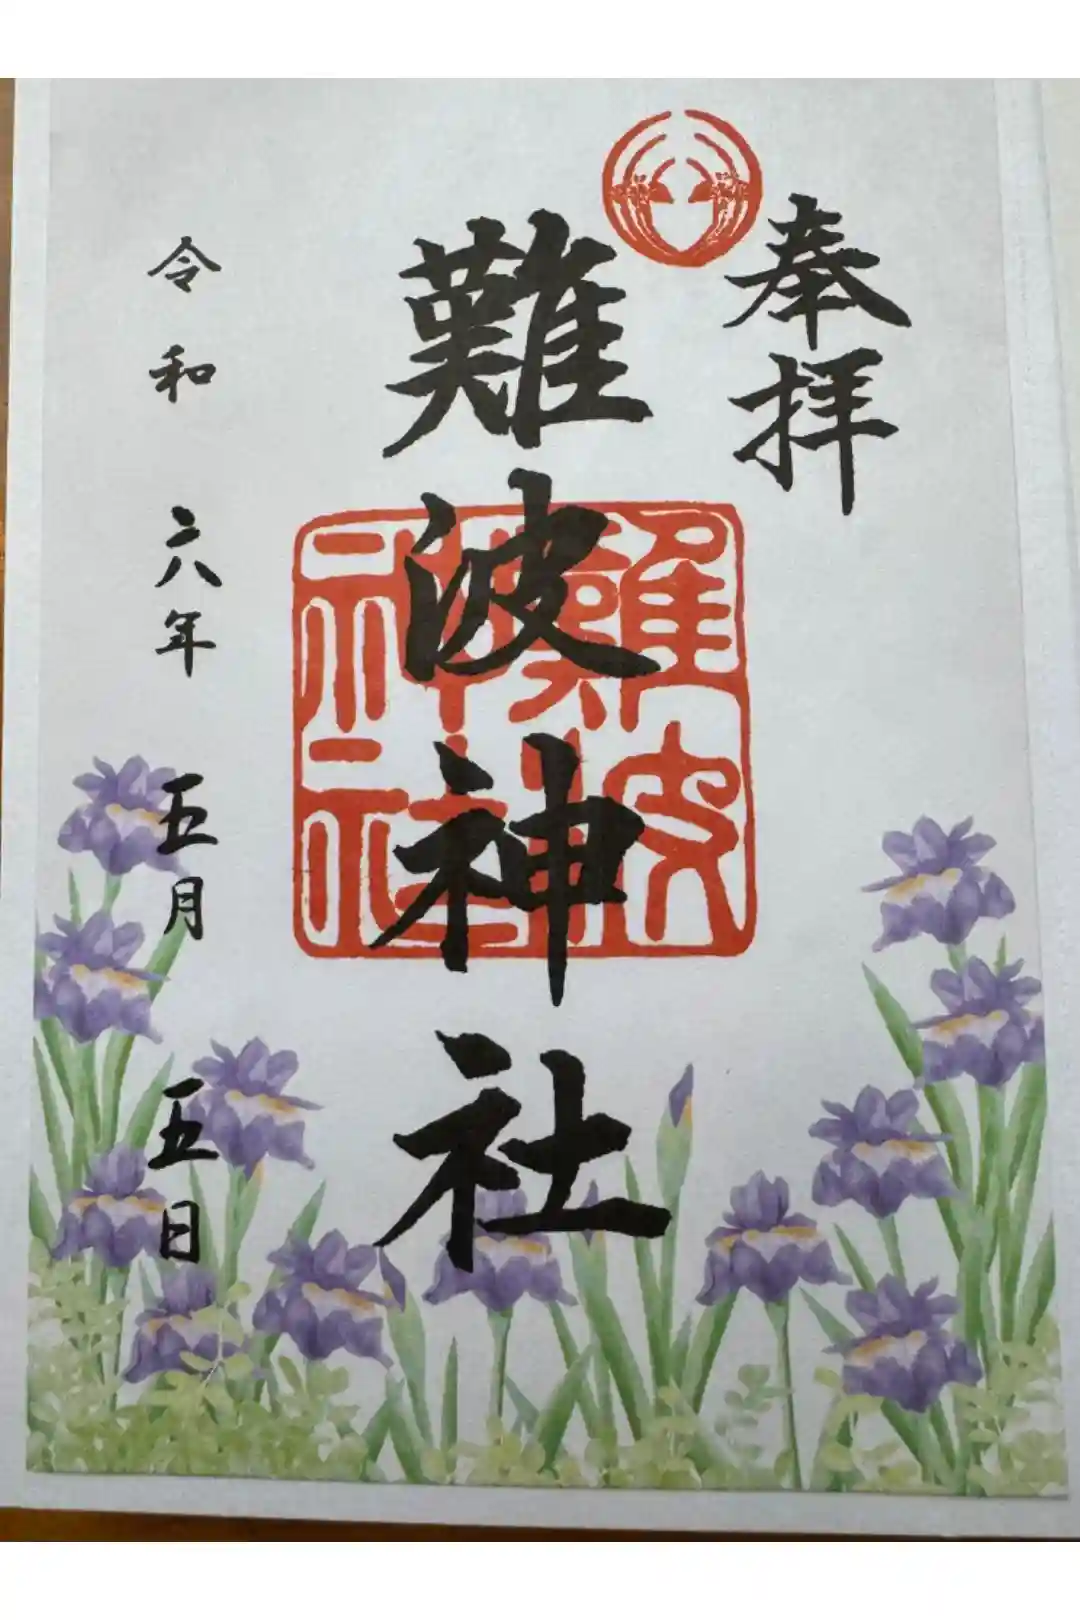 奉拝
難波神社
難波
神社
令和六年五月五日